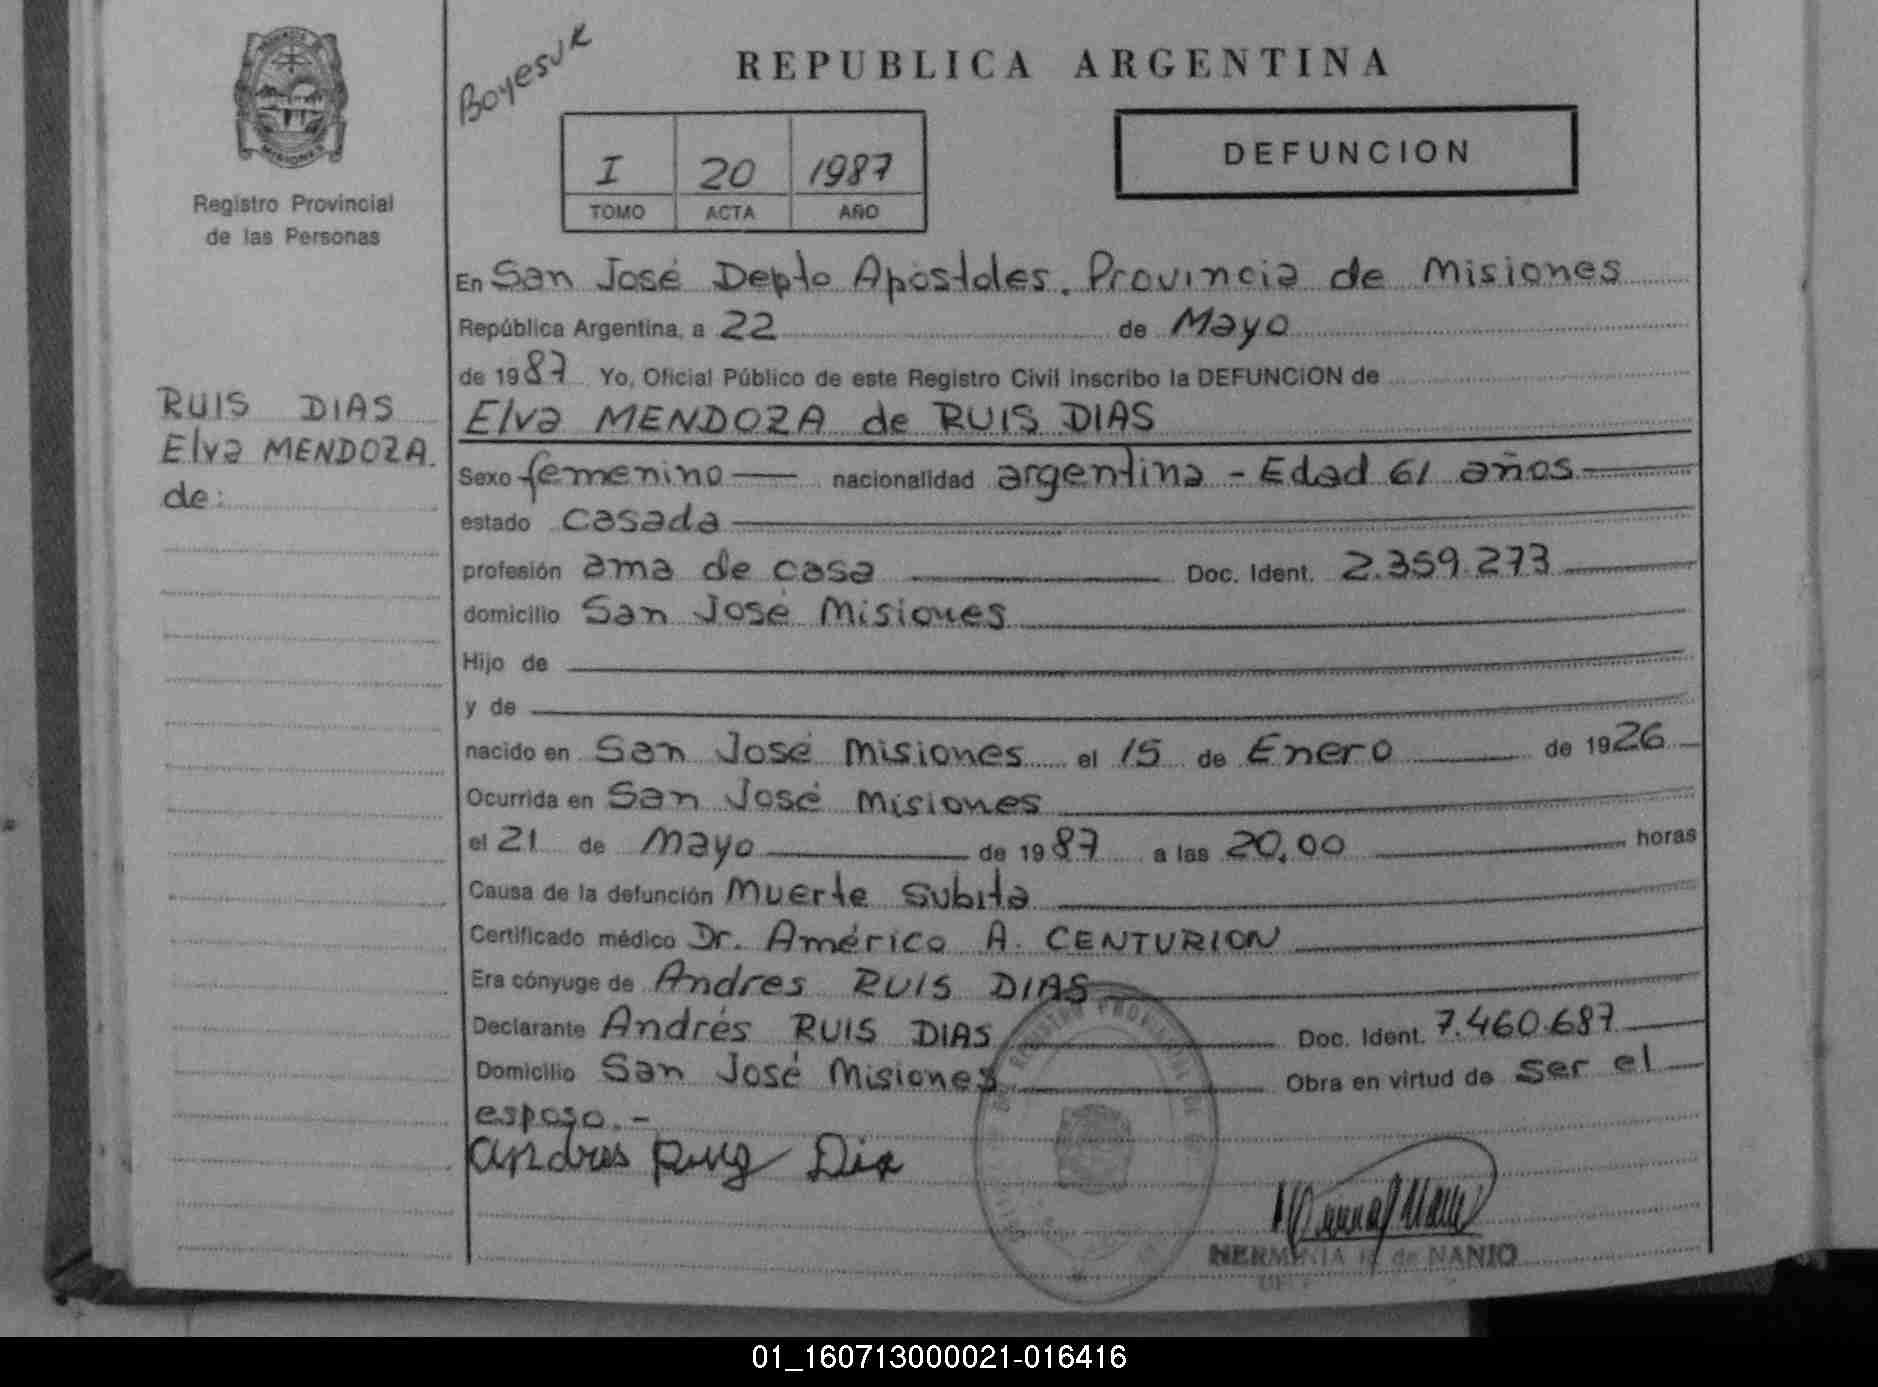 Boyesuk
REPUBLICA ARGENTINA
MISIONES
Registro Provincial
de las Personas
I 20 1987
TOMO ACTA AÑO
DEFUNCION
En San José Depto Apóstoles. Provincia de Misiones
República Argentina, a 22 de Mayo
de 1987 Yo, Oficial Público de este Registro Civil inscribo la DEFUNCION de
RUIS DIAS
Elva MENDOZA.
de:
Elva MENDOZA de RUIS DIAS
Sexo femenino nacionalidad argentina - Edad 61 años
estado casada
profesión ama de casa Doc. Ident. 2.359.273
domicilio San José Misiones
Hijo de
y de
nacido en San José Misiones el 15 de Enero de 1926
Ocurrida en San José Misiones
el 21 de Mayo de 1987 a las 20,00 horas
Causa de la defunción Muerte Subita
Certificado médico Dr. Américo A. CENTURION
Era cónyuge de Andres RUIS DIAS
Declarante Andrés RUIS DIAS Doc. Ident. 7.460.687
Domicilio San José Misiones Obra en virtud de ser el
esposo.-
Andres Ruiz Dia
REGISTRO PROVINCIAL DE
HERMINIA de NANJO
01_160713000021-016416